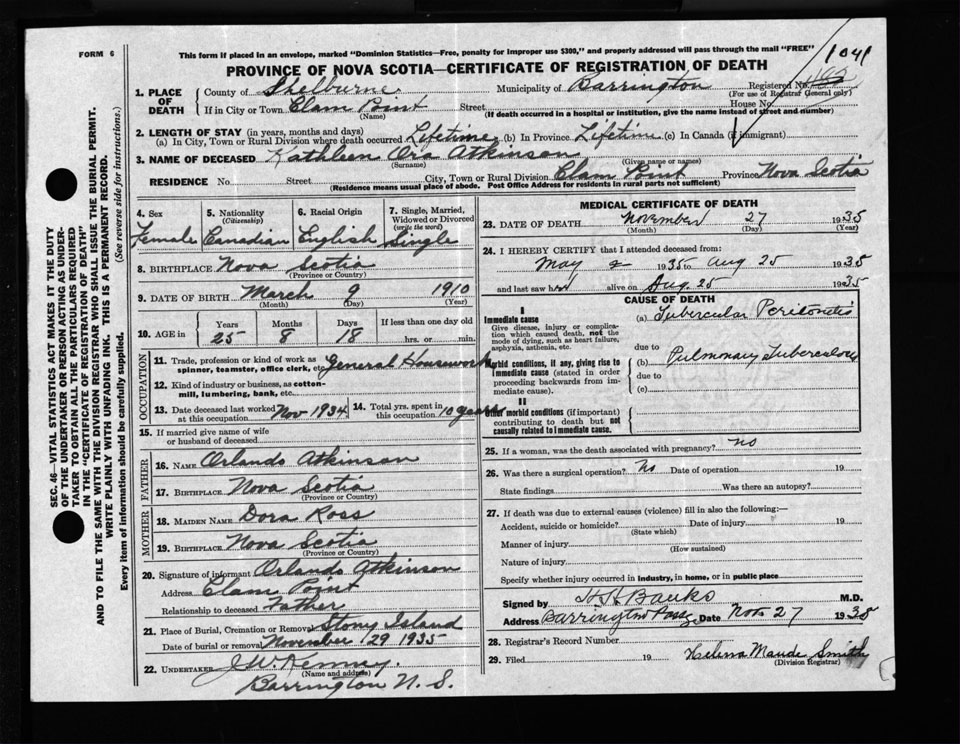 FORM 6
This form if placed in an envelope, marked "Dominion Statistics—Free, penalty for improper use $300," and properly addressed will pass through the mail "FREE"
1041
PROVINCE OF NOVA SCOTIA—CERTIFICATE OF REGISTRATION OF DEATH
1. PLACE OF DEATH
County of Shelburne Municipality of Barrington Registered No.
(For use of Registrar General only)
If in City or Town Clam Point Street House No.
(Name) (If death occurred in a hospital or institution, give the name instead of street and number)
2. LENGTH OF STAY (in years, months and days)
(a) In City, Town or Rural Division where death occurred Lifetime (b) In Province Lifetime (c) In Canada (if immigrant)
3. NAME OF DECEASED Kathleen Ora Atkinson
(Surname) (Given name or names)
RESIDENCE No. Street City, Town or Rural Division Clam Point Province Nova Scotia
(Residence means usual place of abode. Post Office Address for residents in rural parts not sufficient)
4. Sex 5. Nationality (Citizenship) 6. Racial Origin 7. Single, Married, Widowed or Divorced (write the word)
Female Canadian English Single
8. BIRTHPLACE Nova Scotia
(Province or Country)
9. DATE OF BIRTH March 9 1910
(Month) (Day) (Year)
10. AGE in Years Months Days If less than one day old
25 8 18 hrs. or min.
OCCUPATION
11. Trade, profession or kind of work as spinner, teamster, office clerk, etc. General Housework
12. Kind of industry or business, as cotton-mill, lumbering, bank, etc.
13. Date deceased last worked at this occupation Nov 1934 14. Total yrs. spent in this occupation 10 years
15. If married give name of wife or husband of deceased
FATHER
16. NAME Orlando Atkinson
17. BIRTHPLACE Nova Scotia
(Province or Country)
MOTHER
18. MAIDEN NAME Dora Ross
19. BIRTHPLACE Nova Scotia
(Province or Country)
20. Signature of informant Orlando Atkinson
Address Clam Point
Relationship to deceased Father
21. Place of Burial, Cremation or Removal Stony Island
Date of burial or removal November 29 1935
22. UNDERTAKER J W Kenney.
(Name and address)
Barrington N. S.
MEDICAL CERTIFICATE OF DEATH
23. DATE OF DEATH November 27 1935
(Month) (Day) (Year)
24. I HEREBY CERTIFY that I attended deceased from:
May 2 1935 to Aug 25 1935
and last saw her alive on Aug. 25 1935
CAUSE OF DEATH
I
Immediate cause
Give disease, injury or complication which caused death, not the mode of dying, such as heart failure, asphyxia, asthenia, etc.
(a) Tubercular Peritonitis
due to
Morbid conditions, if any, giving rise to immediate cause (stated in order proceeding backwards from immediate cause).
(b) Pulmonary Tuberculosis
due to
(c)
II
Other morbid conditions (if important) contributing to death but not causally related to immediate cause.
25. If a woman, was the death associated with pregnancy? no
26. Was there a surgical operation? No Date of operation 19
State findings Was there an autopsy?
27. If death was due to external causes (violence) fill in also the following:—
Accident, suicide or homicide? Date of injury 19
(State which)
Manner of injury
(How sustained)
Nature of injury
Specify whether injury occurred in industry, in home, or in public place
Signed by H H Banks M.D.
Address Barrington Passage Date Nov 27 1935
28. Registrar's Record Number
29. Filed 19 Helena Maude Smith
(Division Registrar)
SEC. 46—VITAL STATISTICS ACT MAKES IT THE DUTY
OF THE UNDERTAKER OR PERSON ACTING AS UNDER-
TAKER TO OBTAIN ALL THE PARTICULARS REQUIRED
IN THE "CERTIFICATE OF REGISTRATION OF DEATH"
AND TO FILE THE SAME WITH THE DIVISION REGISTRAR WHO SHALL ISSUE THE BURIAL PERMIT.
WRITE PLAINLY WITH UNFADING INK. THIS IS A PERMANENT RECORD.
Every item of information should be carefully supplied. (See reverse side for instructions.)